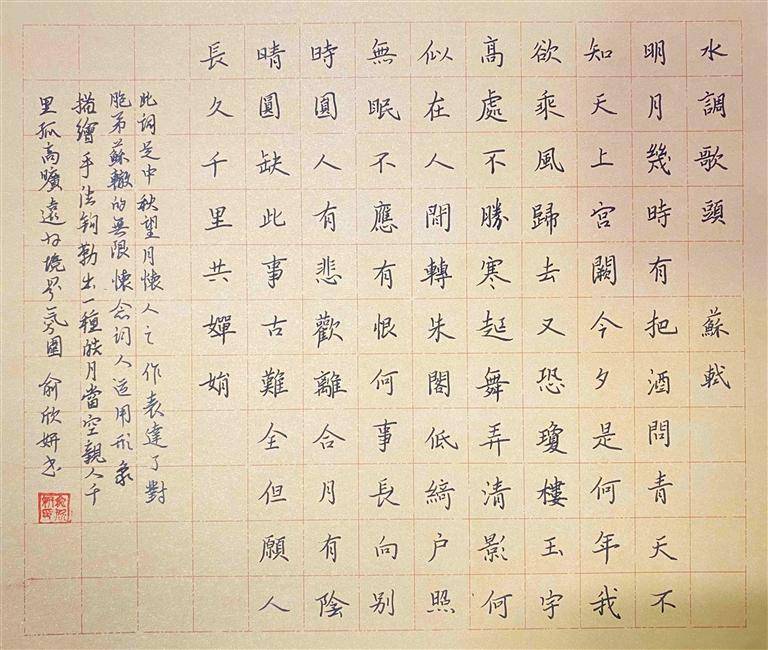 水調歌頭 蘇軾
明月幾時有把酒問青天不
知天上宮闕今夕是何年我
欲乘風歸去又恐瓊樓玉宇
高處不勝寒起舞弄清影何
似在人間轉朱閣低綺户照
無眠不應有恨何事長向别
時圓人有悲歡離合月有陰
晴圓缺此事古難全但願人
長久千里共嬋娟
此詞是中秋望月懷人之作表達了對
胞弟蘇轍的無限懷念詞人运用形象
描繪手法鈎勒出一種皓月當空親人千
里孤高曠遠的境界氛圍 俞欣妍书